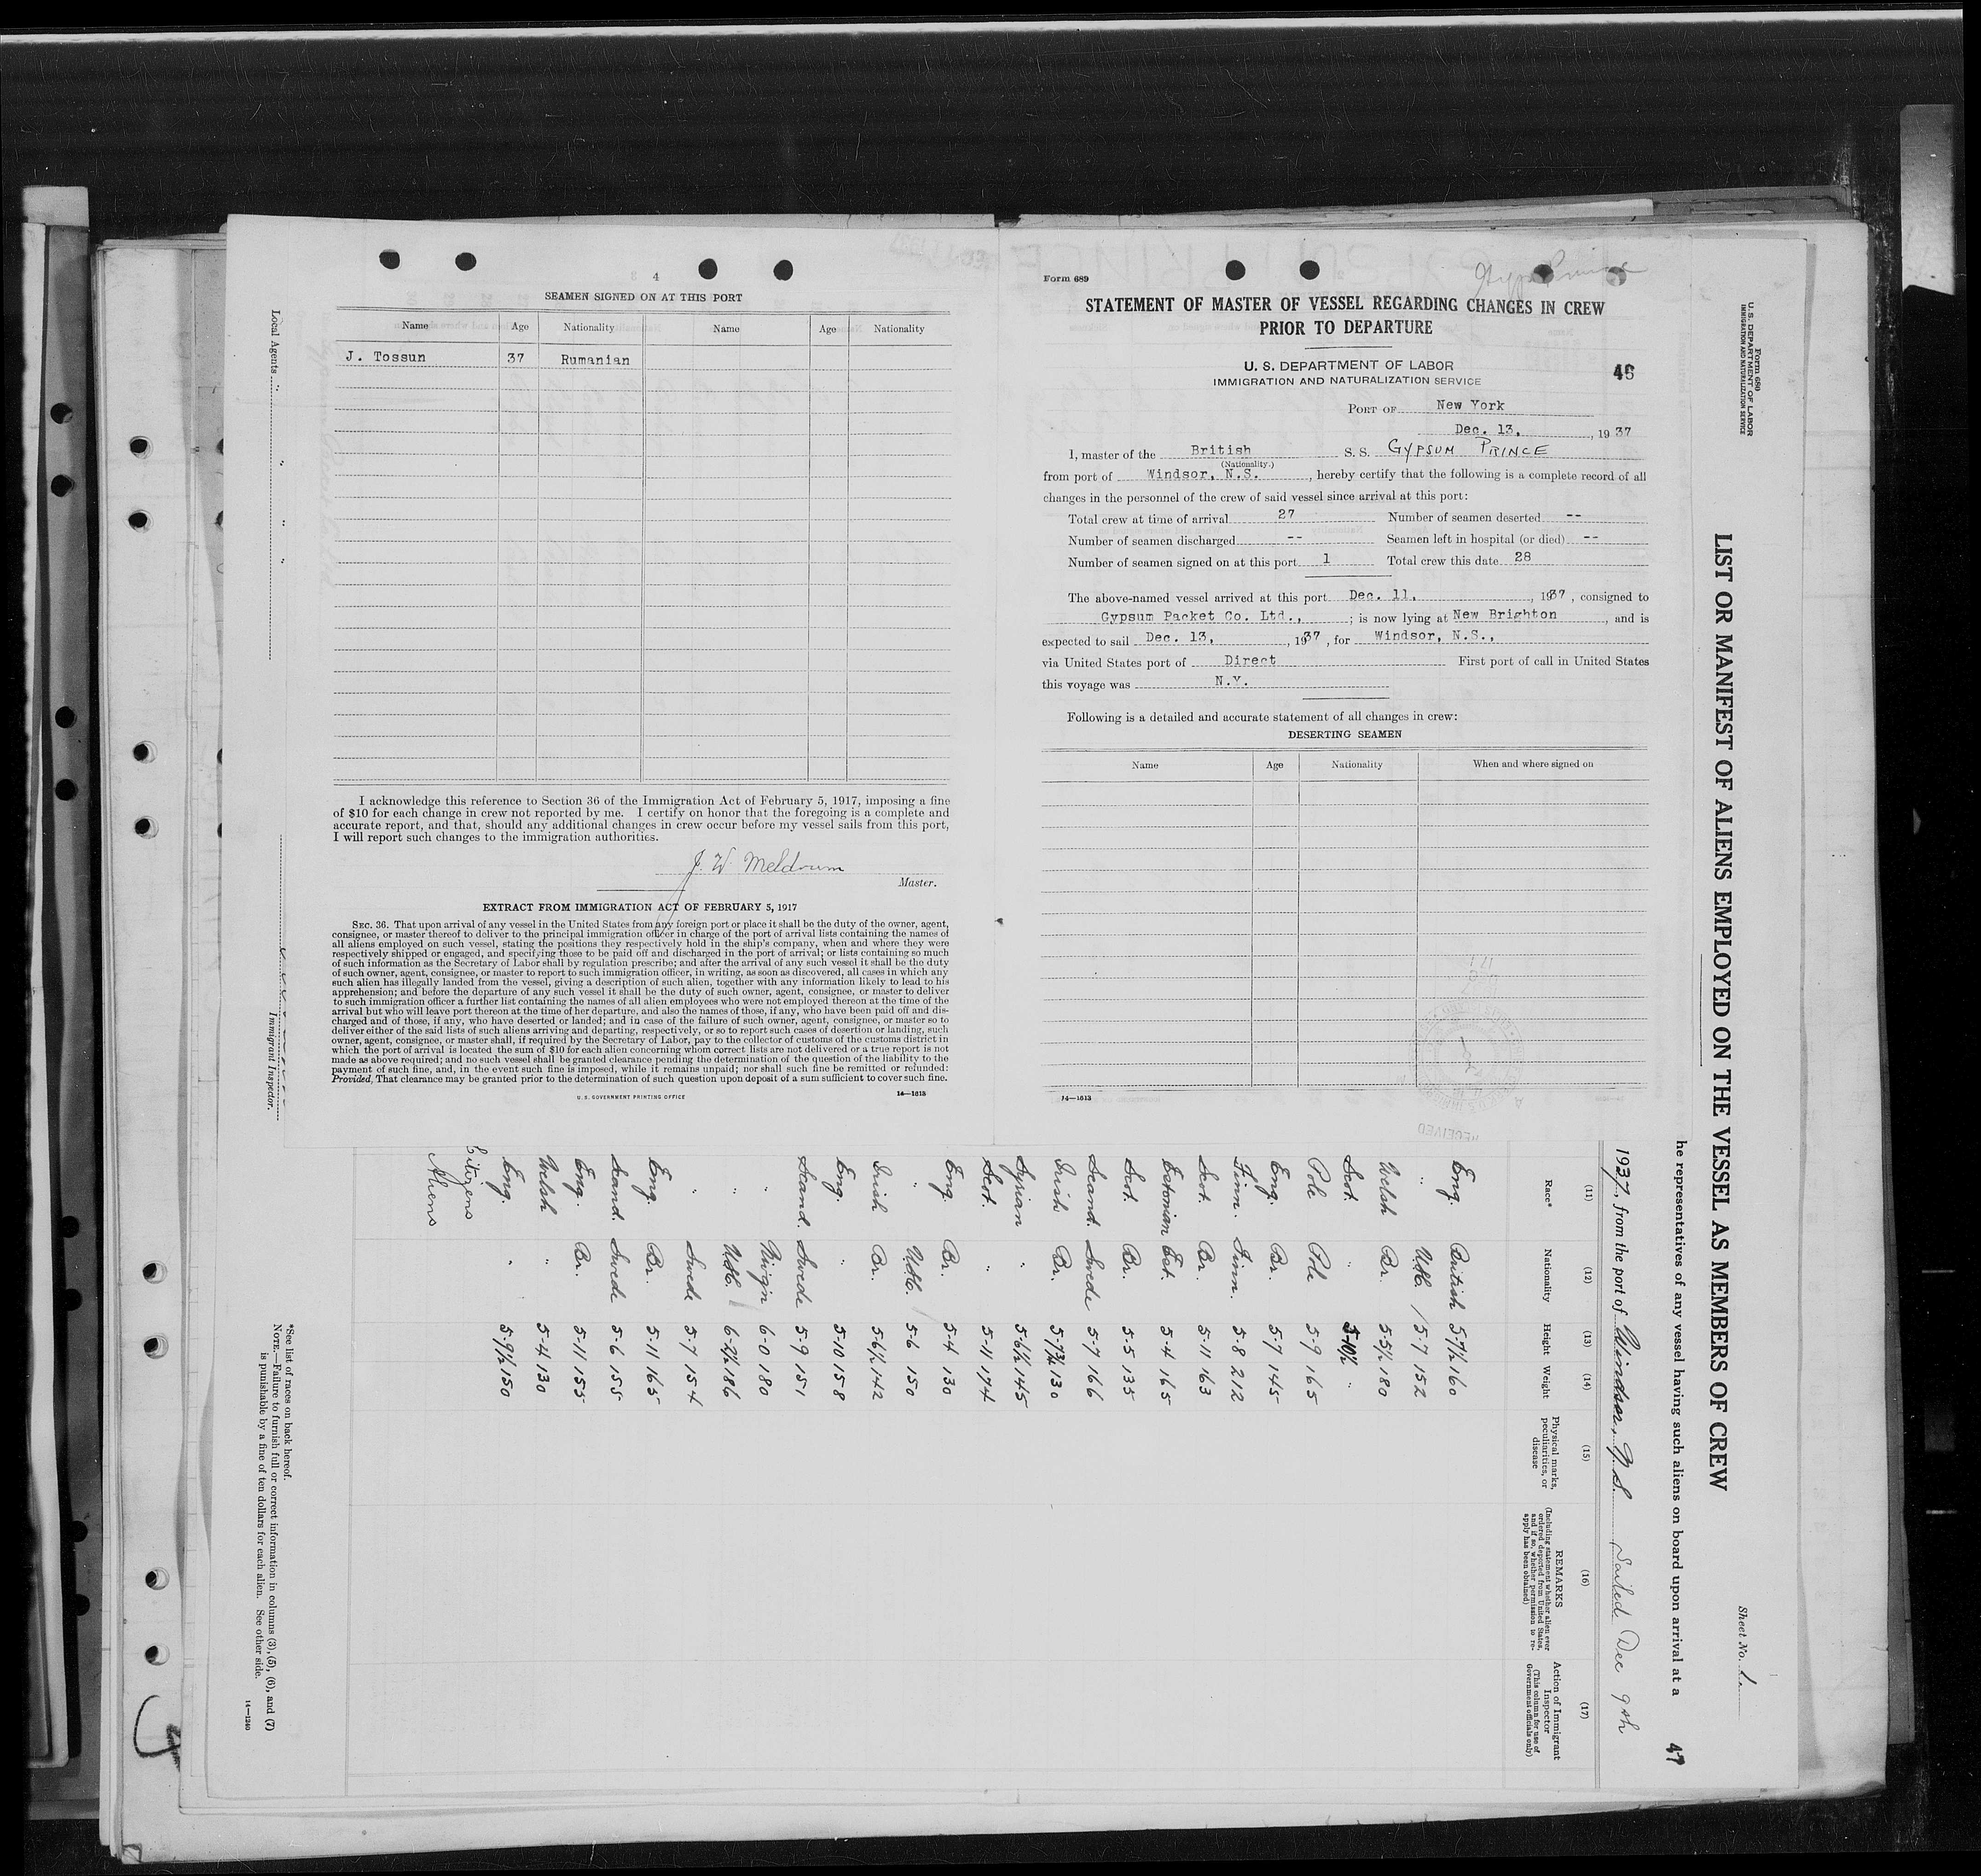 4
SEAMEN SIGNED ON AT THIS PORT
Name Age Nationality Name Age Nationality
J. Tossun 37 Rumanian
I acknowledge this reference to Section 36 of the Immigration Act of February 5, 1917, imposing a fine
of $10 for each change in crew not reported by me. I certify on honor that the foregoing is a complete and
accurate report, and that, should any additional changes in crew occur before my vessel sails from this port,
I will report such changes to the immigration authorities.
J. W. Meldrum
Master.
EXTRACT FROM IMMIGRATION ACT OF FEBRUARY 5, 1917
SEC. 36. That upon arrival of any vessel in the United States from any foreign port or place it shall be the duty of the owner, agent,
consignee, or master thereof to deliver to the principal immigration officer in charge of the port of arrival lists containing the names of
all aliens employed on such vessel, stating the positions they respectively hold in the ship's company, when and where they were
respectively shipped or engaged, and specifying those to be paid off and discharged in the port of arrival; or lists containing so much
of such information as the Secretary of Labor shall by regulation prescribe; and after the arrival of any such vessel it shall be the duty
of such owner, agent, consignee, or master to report to such immigration officer, in writing, as soon as discovered, all cases in which any
such alien has illegally landed from the vessel, giving a description of such alien, together with any information likely to lead to his
apprehension; and before the departure of any such vessel it shall be the duty of such owner, agent, consignee, or master to deliver
to such immigration officer a further list containing the names of all alien employees who were not employed thereon at the time of the
arrival but who will leave port thereon at the time of her departure, and also the names of those, if any, who have been paid off and dis-
charged and of those, if any, who have deserted or landed; and in case of the failure of such owner, agent, consignee, or master so to
deliver either of the said lists of such aliens arriving and departing, respectively, or so to report such cases of desertion or landing, such
owner, agent, consignee, or master shall, if required by the Secretary of Labor, pay to the collector of customs of the customs district in
which the port of arrival is located the sum of $10 for each alien concerning whom correct lists are not delivered or a true report is not
made as above required; and no such vessel shall be granted clearance pending the determination of the question of the liability to the
payment of such fine, and, in the event such fine is imposed, while it remains unpaid; nor shall such fine be remitted or refunded:
Provided, That clearance may be granted prior to the determination of such question upon deposit of a sum sufficient to cover such fine.
U. S. GOVERNMENT PRINTING OFFICE 14—1613
Form 689
STATEMENT OF MASTER OF VESSEL REGARDING CHANGES IN CREW
PRIOR TO DEPARTURE
U. S. DEPARTMENT OF LABOR
IMMIGRATION AND NATURALIZATION SERVICE
46
PORT OF New York
Dec. 13, , 1937
I, master of the British S. S. GYPSUM PRINCE
(Nationality.)
from port of Windsor, N.S. , hereby certify that the following is a complete record of all
changes in the personnel of the crew of said vessel since arrival at this port:
Total crew at time of arrival 27 Number of seamen deserted --
Number of seamen discharged -- Seamen left in hospital (or died) --
Number of seamen signed on at this port 1 Total crew this date 28
The above-named vessel arrived at this port Dec. 11, , 1937 , consigned to
Gypsum Packet Co. Ltd., ; is now lying at New Brighton , and is
expected to sail Dec. 13, , 1937 , for Windsor, N.S.,
via United States port of Direct First port of call in United States
this voyage was N.Y.
Following is a detailed and accurate statement of all changes in crew:
DESERTING SEAMEN
Name Age Nationality When and where signed on
14—1613
RECEIVED
Form 680
U. S. DEPARTMENT OF LABOR
IMMIGRATION AND NATURALIZATION SERVICE
Sheet No. 1.
LIST OR MANIFEST OF ALIENS EMPLOYED ON THE VESSEL AS MEMBERS OF CREW
he representatives of any vessel having such aliens on board upon arrival at a
47
1937, from the port of Windsor, N.S. Sailed Dec 9th
(11) (12) (13) (14) (15) (16) (17)
Race* Nationality Height Weight Physical marks, peculiarities, or disease REMARKS (Including statement whether alien ever ordered deported from United States, and if so, whether permission to re-apply has been obtained) Action of Immigrant Inspector (This column for use of Government officials only)
Eng. British 5-7½ 160
" U.S.C. 5-7 152
Welsh Br. 5-5½ 180
Scot. " 5-10½ "
Pole Pole 5-9 165
Eng. Br. 5-7 145
Finn. Finn. 5-8 212
Scot. Br. 5-11 163
Estonian Est. 5-4 165
Scot. Br. 5-5 135
Scand. Swede 5-7 166
Irish Br. 5-7¾ 130
Syrian " 5-6½ 145
Scot. " 5-11 174
Eng. Br. 5-4 130
" U.S.C. 5-6 150
Irish Br. 5-6½ 142
Eng. " 5-10 158
Scand. Swede 5-9 151
" Nirgin 6-0 180
" U.S.C. 6-2½ 186
" Swede 5-7 154
Eng. Br. 5-11 165
Scand. Swede 5-6 155
Eng. Br. 5-11 155
Welsh " 5-4 130
Eng. " 5-9½ 150
Citizens
Aliens
Local Agents
Immigrant Inspector.
*See list of races on back hereof.
NOTE.—Failure to furnish full or correct information in columns (3), (5), (6), and (7)
is punishable by a fine of ten dollars for each alien. See other side.
14—1240